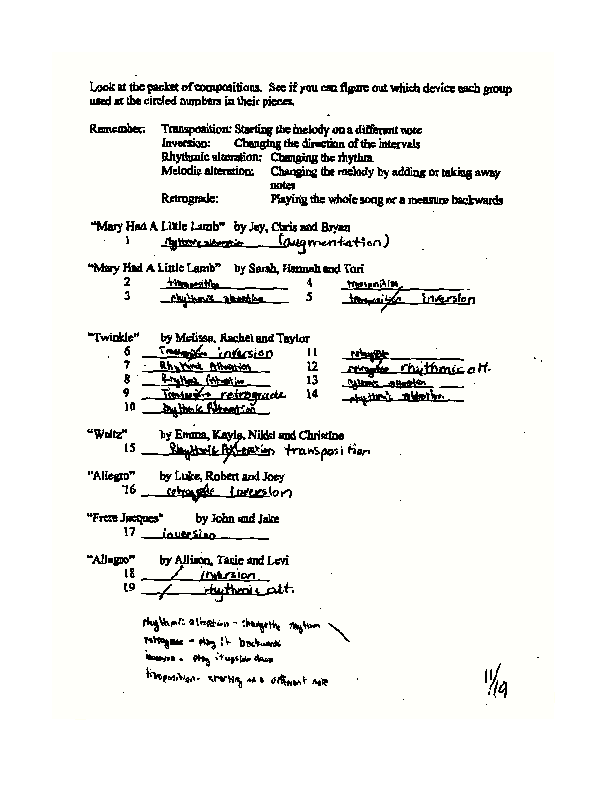 Look at the packet of compositions. See if you can figure out which device each group
used at the circled numbers in their pieces.
Remember: Transposition: Starting the melody on a different note
Inversion: Changing the direction of the intervals
Rhythmic alteration: Changing the rhythm
Melodic alteration: Changing the melody by adding or taking away
notes
Retrograde: Playing the whole song or a measure backwards
"Mary Had A Little Lamb" by Jay, Chris and Bryan
1 rhythmic alteration (augmentation)
"Mary Had A Little Lamb" by Sarah, Hannah and Tori
2 transposition 4 transposition
3 rhythmic alteration 5 transposition inversion
"Twinkle" by Melissa, Rachel and Taylor
6 inversion 11
7 Rhythmic Alteration 12 retrograde rhythmic alt.
8 Rhythmic Alteration 13 alteration
9 retrograde 14 rhythmic alteration
10 Rhythmic Alteration
"Waltz" by Emma, Kayla, Nikki and Christine
15 Rhythmic Alteration transposition
"Allegro" by Luke, Robert and Joey
16 retrograde inversion
"Frere Jacques" by John and Jake
17 inversion
"Allegro" by Allison, Tacie and Levi
18 inversion
19 rhythmic alt.
rhythmic alteration - change the rhythm
retrograde - play it backwards
inversion - play it upside down
transposition - starting on a different note
11/19